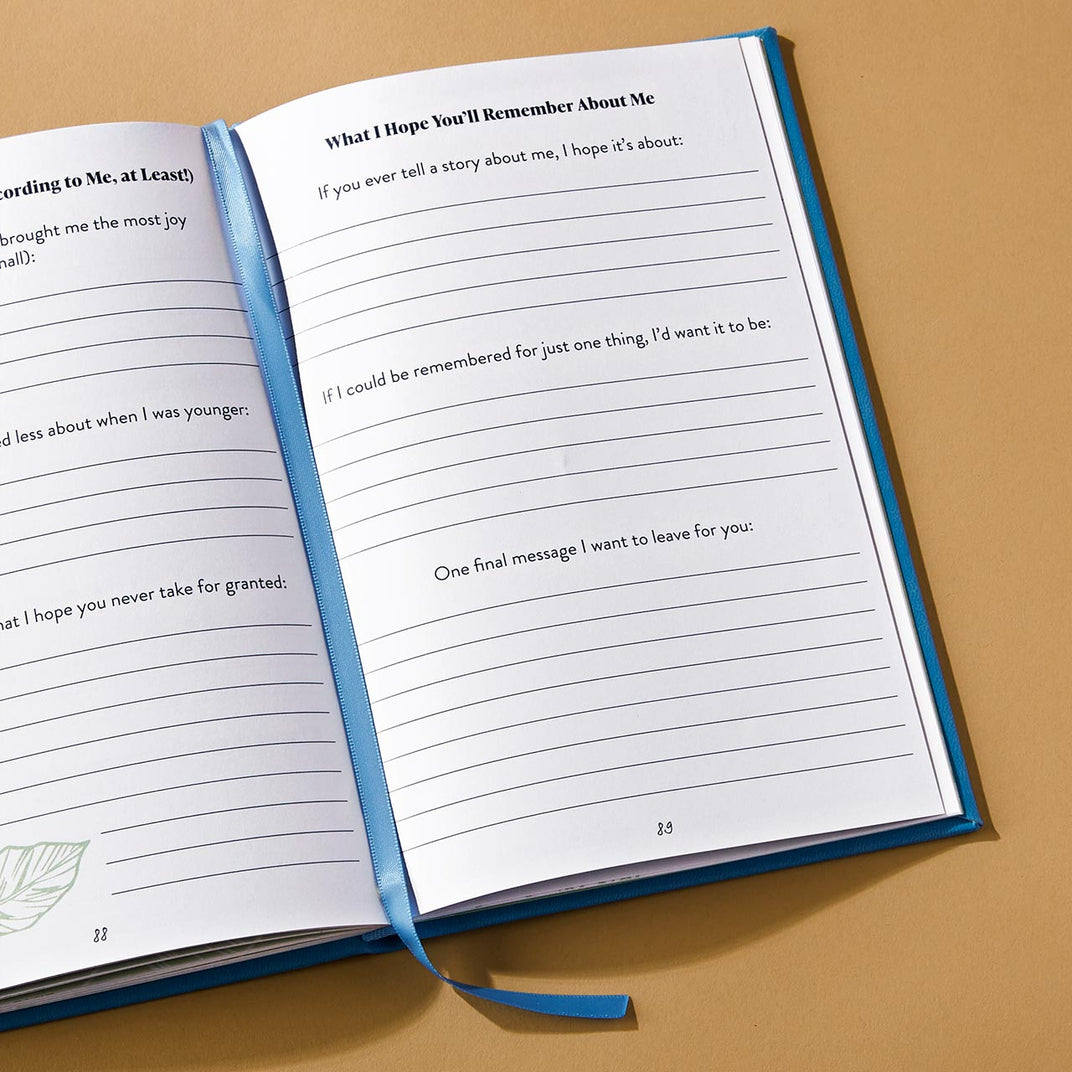 cording to Me, at Least!)
brought me the most joy
nall):
ed less about when I was younger:
hat I hope you never take for granted:
88
What I Hope You'll Remember About Me
If you ever tell a story about me, I hope it's about:
If I could be remembered for just one thing, I'd want it to be:
One final message I want to leave for you:
89